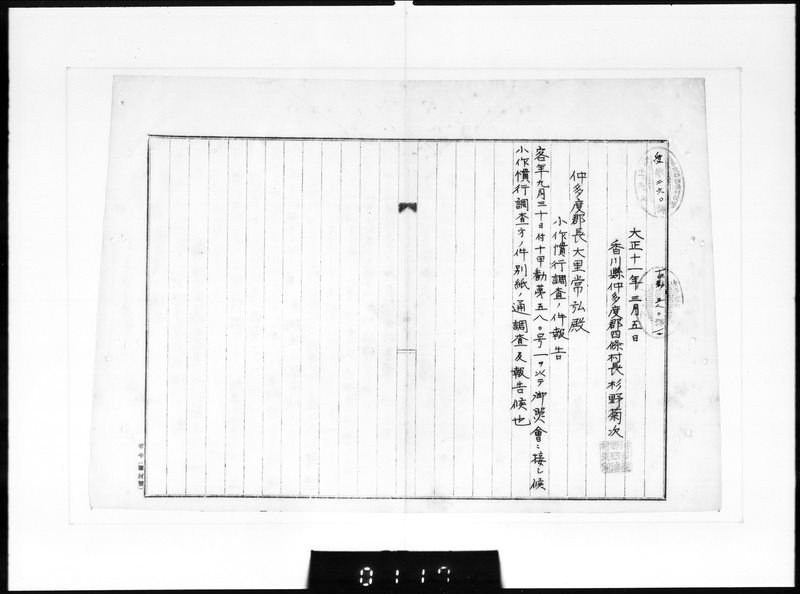 大正十一年三月五日
香川縣仲多度郡四條村長杉野菊次
仲多度郡長大里常弘殿
小作慣行調査ノ件報告
客年九月三十日付十甲勸第五八〇号一ヲ以テ御照會ニ接シ候
小作慣行調査方ノ件別紙ノ通調査及報告候也
0117